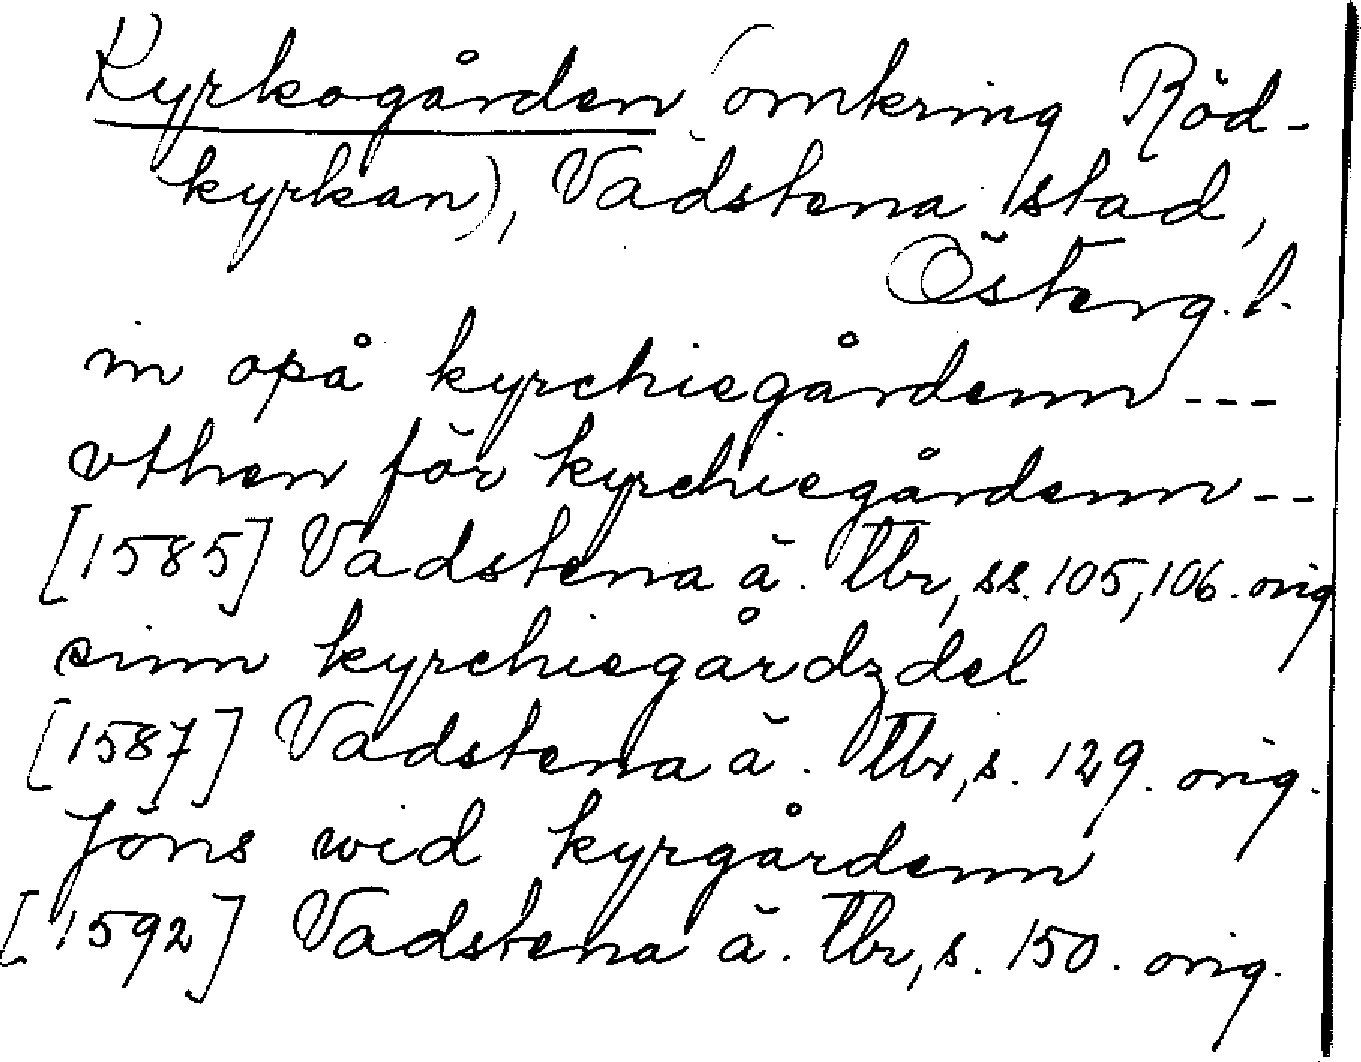 Kyrkogården (omkring Röd-
kyrkan), Vadstena stad,
Österg. l.
in opå kyrchiegårdenn ---
vthen för kyrchiegårdenn --
[1585] Vadstena ä. Tbr, ss. 105, 106. orig
einn kyrchiegårdzdel
[1587] Vadstena ä. Tbr, s. 129. orig.
Jöns wid kyrgårdenn
[1592] Vadstena ä. Tbr, s. 150. orig.